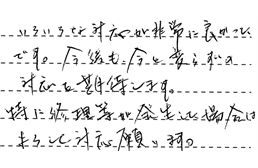 いろいろと対応が非常に良かった
です。今後も今と変らずの
対応を期待します。
特に修理等が発生した場合は
対応願います。